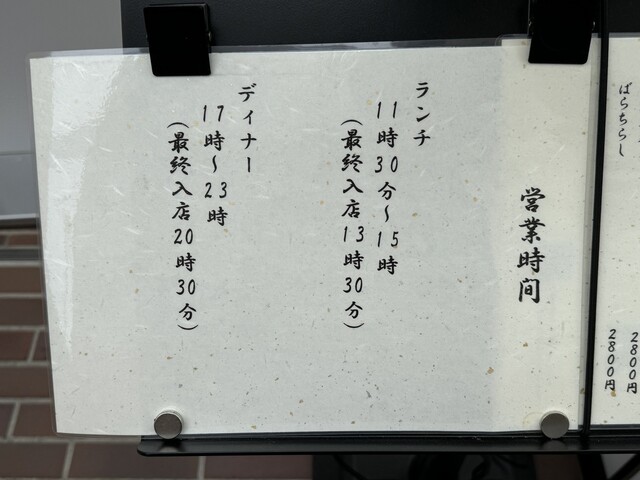 ばらちらし
2800円
2800円
営業時間
ランチ
11時30分～15時
（最終入店13時30分）
ディナー
17時～23時
（最終入店20時30分）